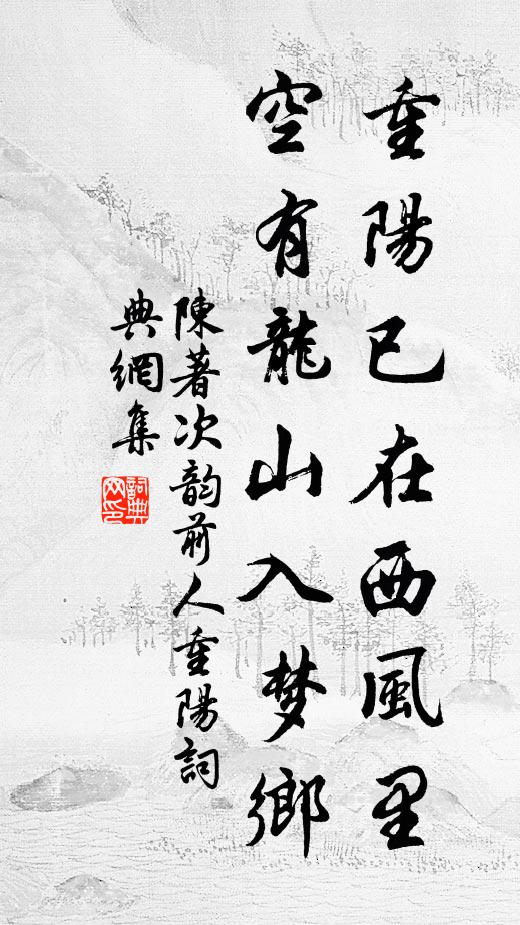 重陽已在西風里
空有龍山入梦鄉
陳著次韵前人重陽詞
典網集
詞典
网印